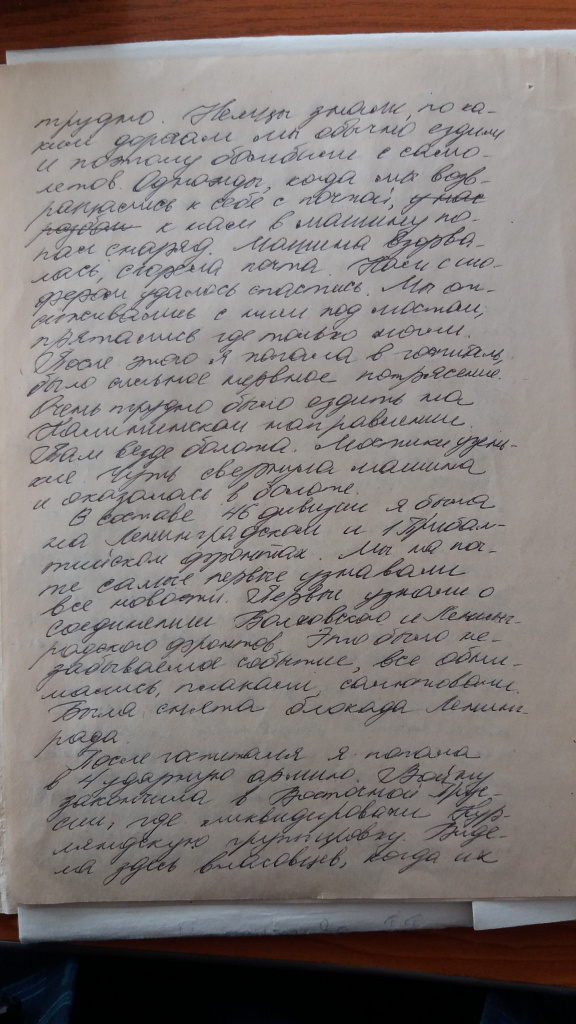 трудно. Немцы знали, по ка-
ким дорогам мы обычно ездили
и поэтому бомбили с само-
летов. Однажды, когда мы возв-
ращались к себе с почтой, у нас
к нам в машину по-
пал снаряд. Машина взорва-
лась, сгорела почта. Нам с шо-
фером удалось спастись. Мы от-
леживались с ним под мостом,
прятались где только могли.
После этого я попала в госпиталь,
было сильное нервное потрясение.
Очень трудно было ездить на
Калининском направлении.
Там везде болота. Мостики узень-
кие. Чуть свернула машина
и оказалась в болоте.
В составе 46 дивизии я была
на Ленинградском и 1 Прибал-
тийском фронтах. Мы на поч-
те самые первые узнавали
все новости. Первые узнали о
соединении Волховского и Ленинг-
радского фронтов. Это было не-
забываемое событие, все обни-
мались, плакали, салютовали.
Была снята блокада Ленинг-
рада.
После госпиталя я попала
в 4 ударную армию. Войну
закончила в Восточной Прус-
сии, где ликвидировали Кур-
ляндскую группировку. Виде-
ла здесь власовцев, когда их